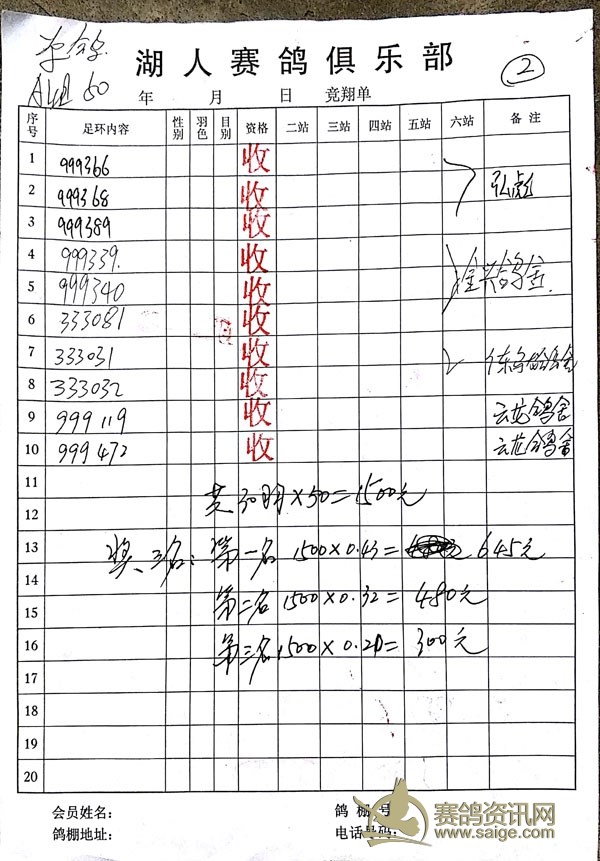 湖人赛鸽俱乐部
②
年 月 日 竞翔单
序号 足环内容 性别 羽色 目别 资格 二站 三站 四站 五站 六站 备注
1 999366 收
2 999368 收 弘彪
3 999389 收
4 999339. 收
5 999340 收
6 333081 收
7 333031 收
8 333032 收
9 999119 收 云龙鸽舍
10 999472 收 云龙鸽舍
11
共30羽×50=1500元
12
13 奖三名: 第一名 1500×0.43= 645元
14
15 第二名 1500×0.32= 480元
16 第三名 1500×0.20= 300元
17
18
19
20
会员姓名: 鸽棚号
鸽棚地址: 电话号码:
赛鸽资讯网
www.saige.com